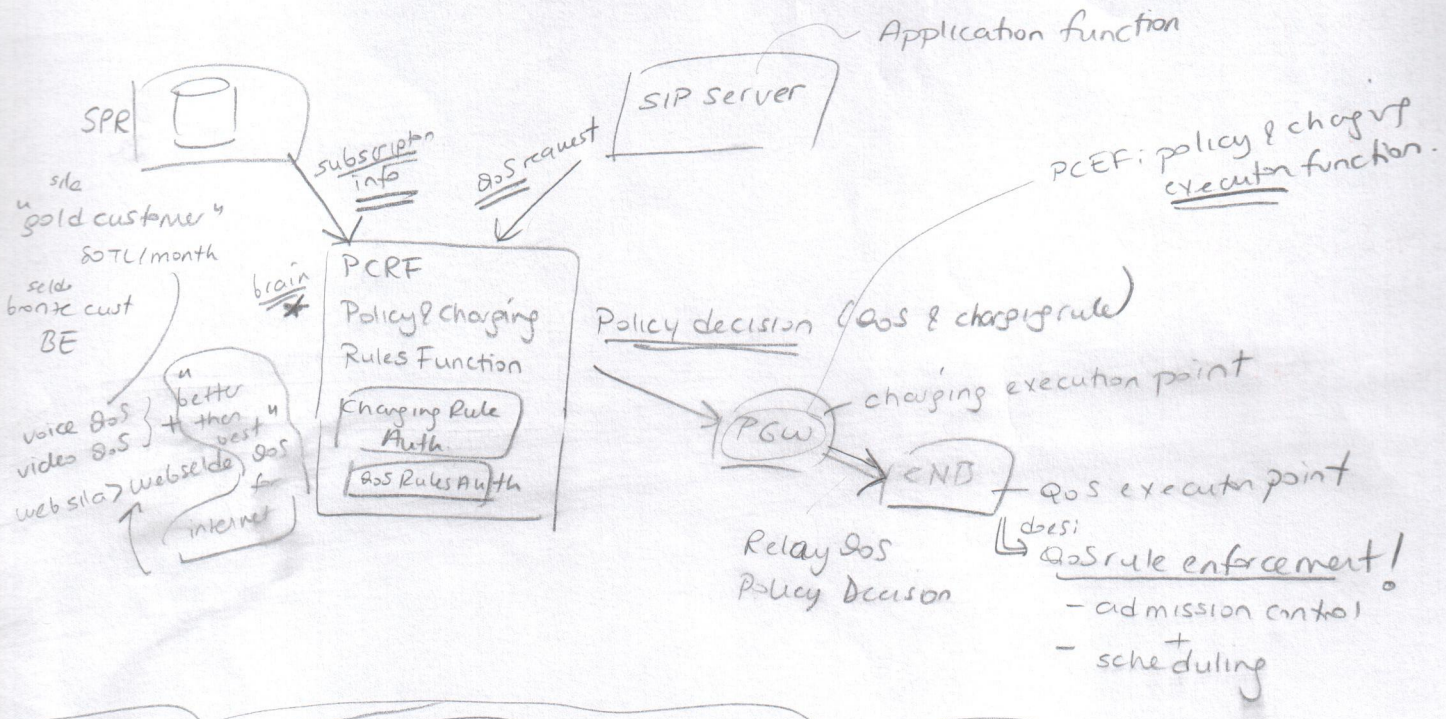 Application function
SIP server
SPR
subscripton
info
QoS request
PCEF: policy & chagıng
executon function.
sıla
"gold customer"
80TL/month
selda
bronze cust
BE
brain
PCRF
Policy & Charging
Rules Function
Charging Rule
Auth.
QoS Rules Auth
Policy decision (QoS & chargıng rule)
charging execution point
PGW
eNB
QoS executon point
does:
QoS rule enforcement!
- admission control
+
- scheduling
Relay QoS
Policy Decison
voice QoS
video QoS
+
"better
then
best"
web sıla > web selda QoS
for
internet